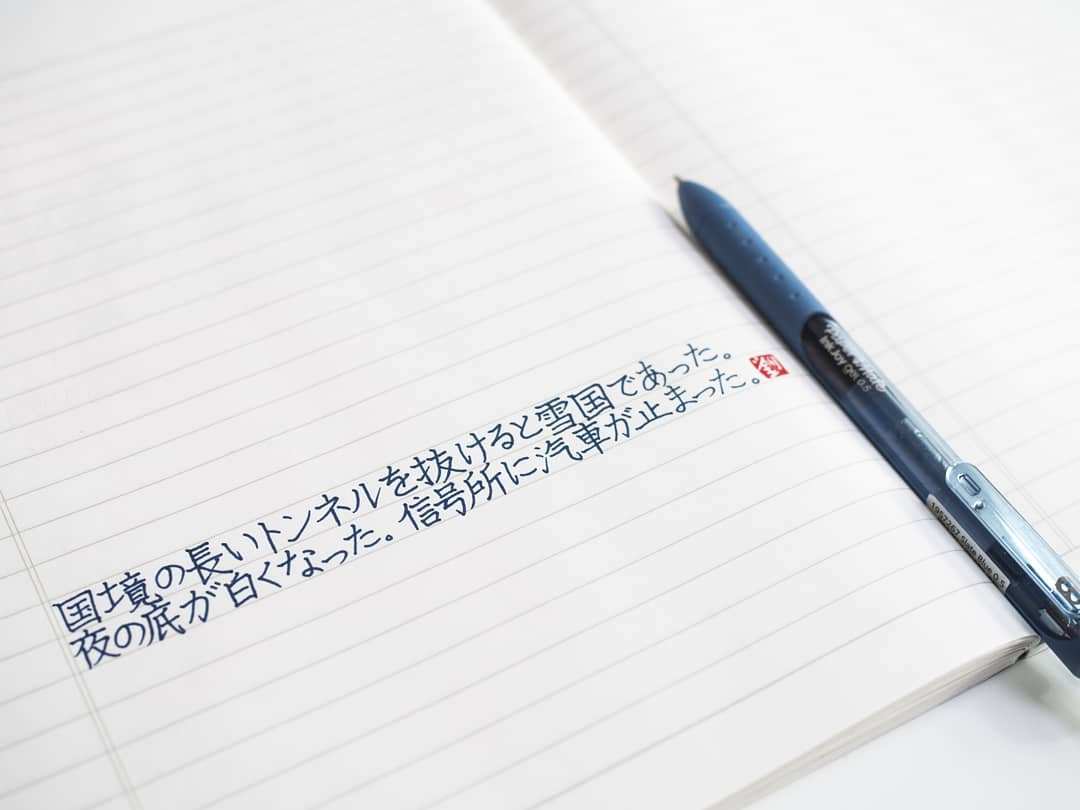 国境の長いトンネルを抜けると雪国であった。
夜の底が白くなった。信号所に汽車が止まった。
Paper:mate
InkJoy Gel 0.5
1992267 Slate Blue 0.5